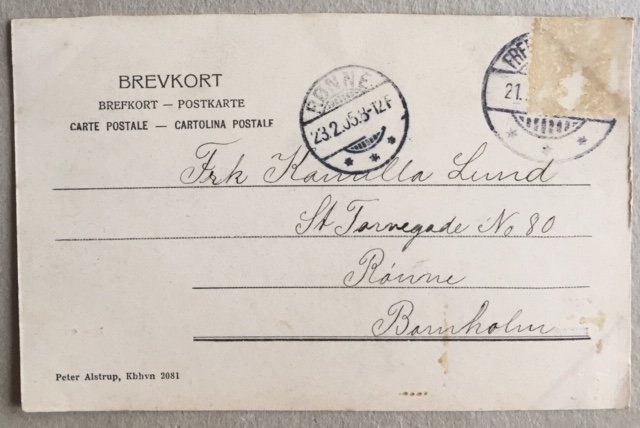 BREVKORT
BREFKORT — POSTKARTE
CARTE POSTALE — CARTOLINA POSTALE
RØNNE
23.2.05.8-12F
FRE
21.
Frk Kamilla Lund
St Torvegade No 80
Rønne
Bornholm
Peter Alstrup, Kbhvn 2081